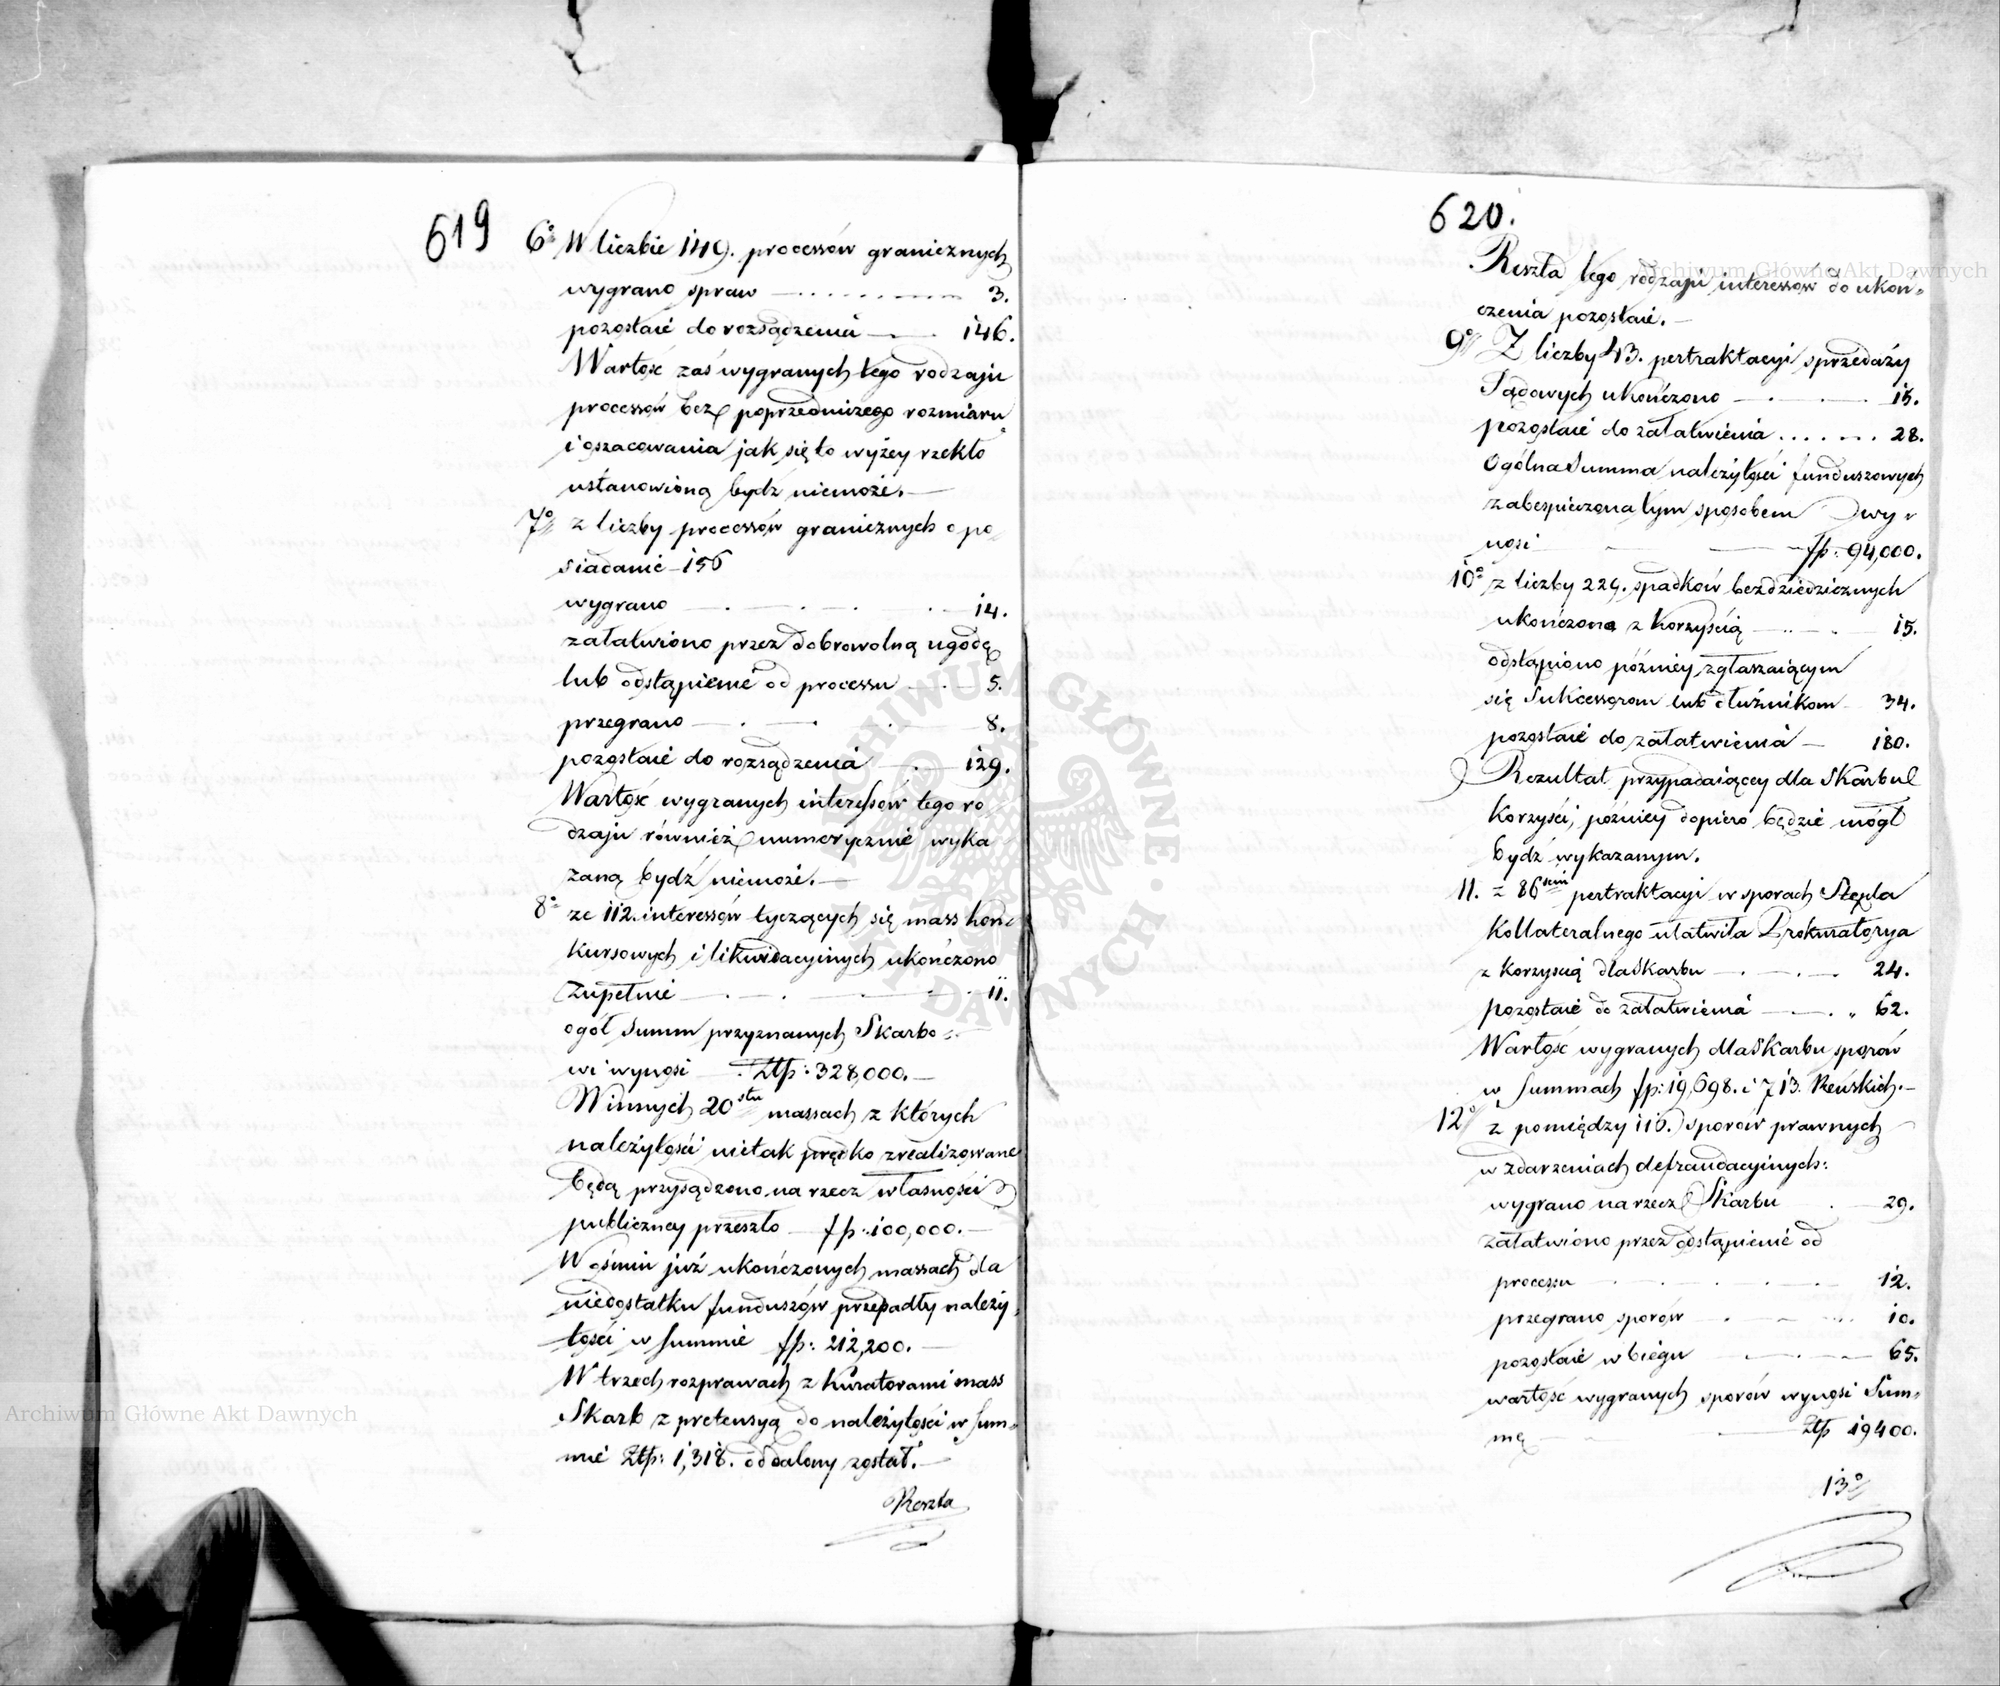 619
6° W liczbie 149. processów granicznych
wygrano spraw 3.
pozostaie do rozsądzenia 146.
Wartość zaś wygranych tego rodzaju
processów bez poprzedniczego rozmiaru
i oszacowania jak się to wyżey rzekło
ustanowioną bydź niemoże.
7° z liczby processów granicznych o po
siadanie - 156
wygrano 14.
załatwiono przez dobrowolną ugodę
lub odstąpienie od processu 5.
przegrano 8.
pozostaie do rozsądzenia 129.
Wartość wygranych interessów tego ro
dzaju również numerycznie wyka
zaną bydź niemoże.
8° ze 112. interessów tyczących się mass kon-
kursowych i likwidacyinych ukończono
zupełnie 11.
ogół summ przyznanych Skarbo-
wi wynosi Złp: 328,000.
W innych 20stu massach z których
należytości nietak prędko zrealizowane
będą przysądzono na rzecz własności
publiczney przeszło fp: 100,000.
W ośmiu już ukończonych massach dla
niedostatku funduszów przepadły należy-
tości w summie fp: 212,200.
W trzech rozprawach z Kuratorami mass
Skarb z pretensyą do należytości w sum-
mie Złp: 1,318. oddalony został.
Reszta
620.
Reszta tego rodzaju interessów do ukoń-
czenia pozostaie.
9° Z liczby 43. pertraktacyi sprzedaży
Sądowych ukończono 15.
pozostaie do załatwienia 28.
Ogólna Summa należytości funduszowych
zabespieczona tym sposobem wy-
nosi fp: 94,000.
10° z liczby 229. spadków bezdziedzicznych
ukończono z korzyścią 15.
odstąpiono późniey zgłaszaiącym
się Sukcessorom lub dłużnikom 34.
pozostaie do załatwienia 180.
Rezultat przypadaiącey dla Skarbu
Korzyści, późniey dopiero będzie mógł
bydź wykazanym.
11. z 86ściu pertraktacyi w sporach Stępla
Kollateralnego ułatwiła Prokuratorya
z korzyścią dla Skarbu 24.
pozostaie do załatwienia 62.
Wartość wygranych dla Skarbu sporów
w Summach fp: 19,698. i 713. Reńskich.
12° z pomiędzy 116. sporów prawnych
w zdarzeniach defraudacyinych:
wygrano na rzecz Skarbu 29.
załatwiono przez odstąpienie od
processu 12.
przegrano sporów 10.
pozostaie w biegu 65.
wartość wygranych sporów wynosi Sum-
mę Złp 19400.
13°
Archiwum Główne Akt Dawnych
Archiwum Główne Akt Dawnych
ARCHIWUM GŁÓWNE AKT DAWNYCH